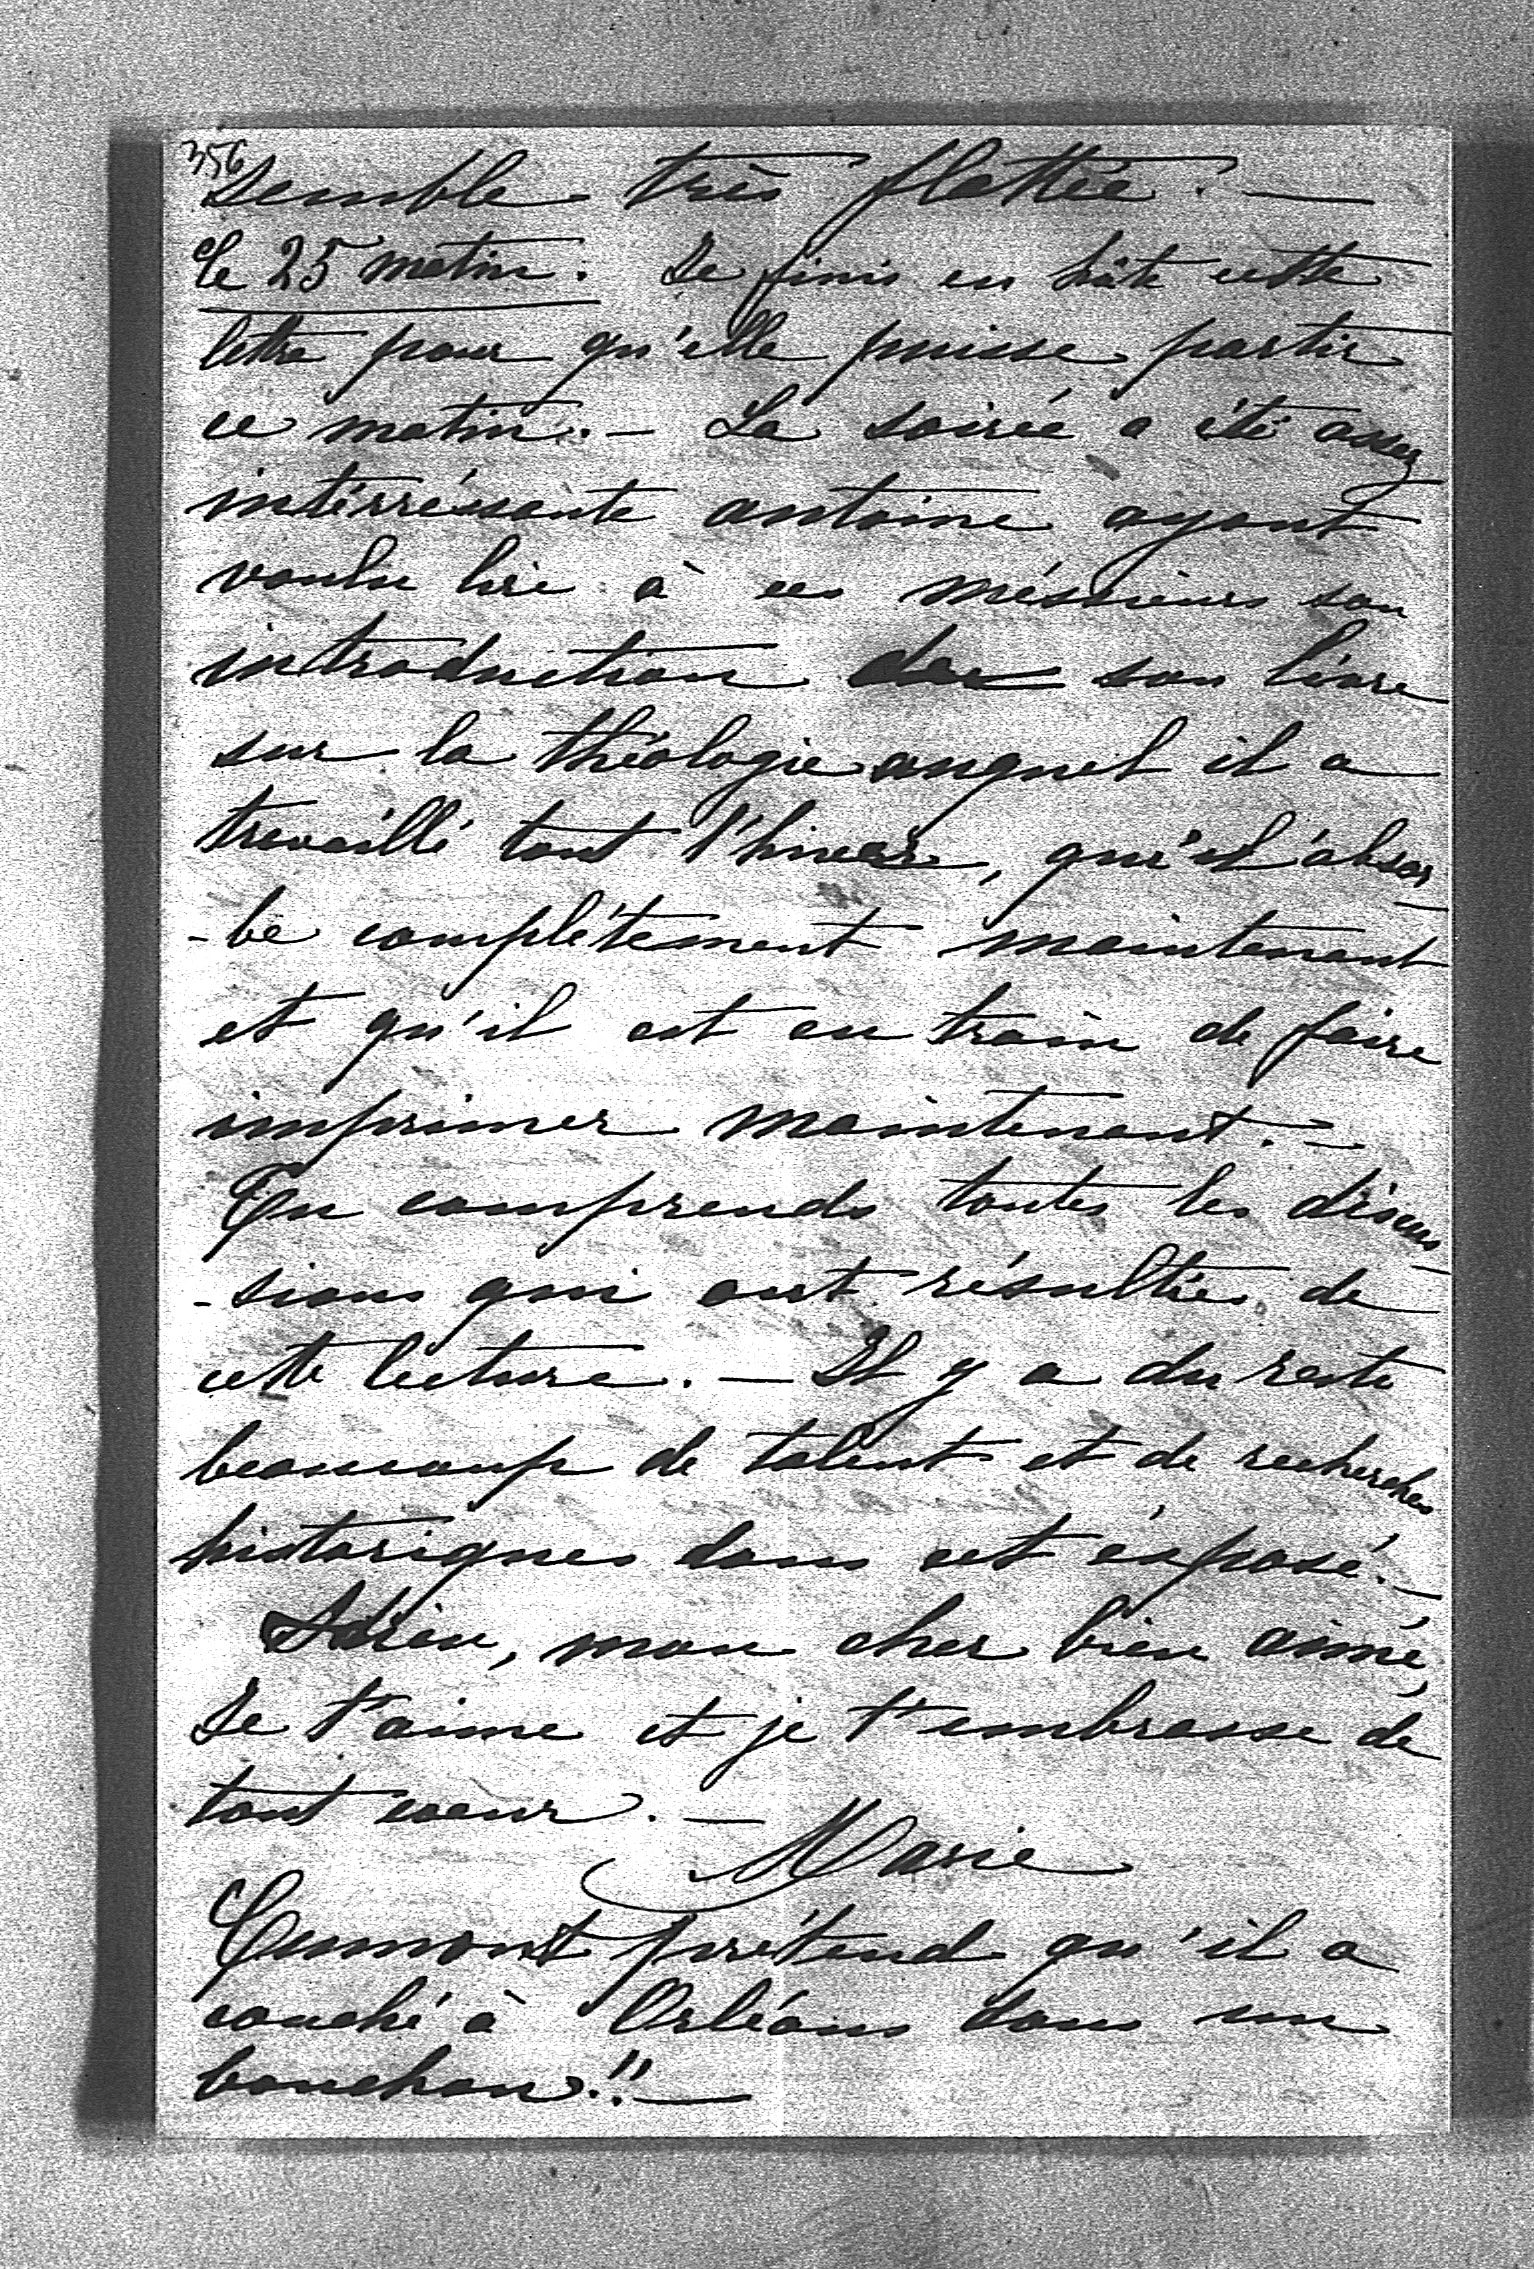 356
semble très flattée. —
Le 25 matin. Je finis en hâte cette
lettre pour qu'elle puisse partir
ce matin. — La soirée a été assez
intérréssante antoine ayant
voulu lire à ces méssieurs son
introduction son livre
sur la théologie auquel il a
travaillé tout l'hiver, qui l'absor-
-be complétement maintenant
et qu'il est en train de faire
imprimer maintenant. —
Tu comprends toutes les discus-
-sions qui ont résultées de
cette lecture. — Il y a du reste
beaucoup de talent et de recherches
historiques dans cet éxposé. —
Adieu, mon cher bien aimé,
Je t'aime et je t'embrasse de
tout coeur. —
Marie
Cumont prétend qu'il a
couché à Orléans dans un
bouchon!! —